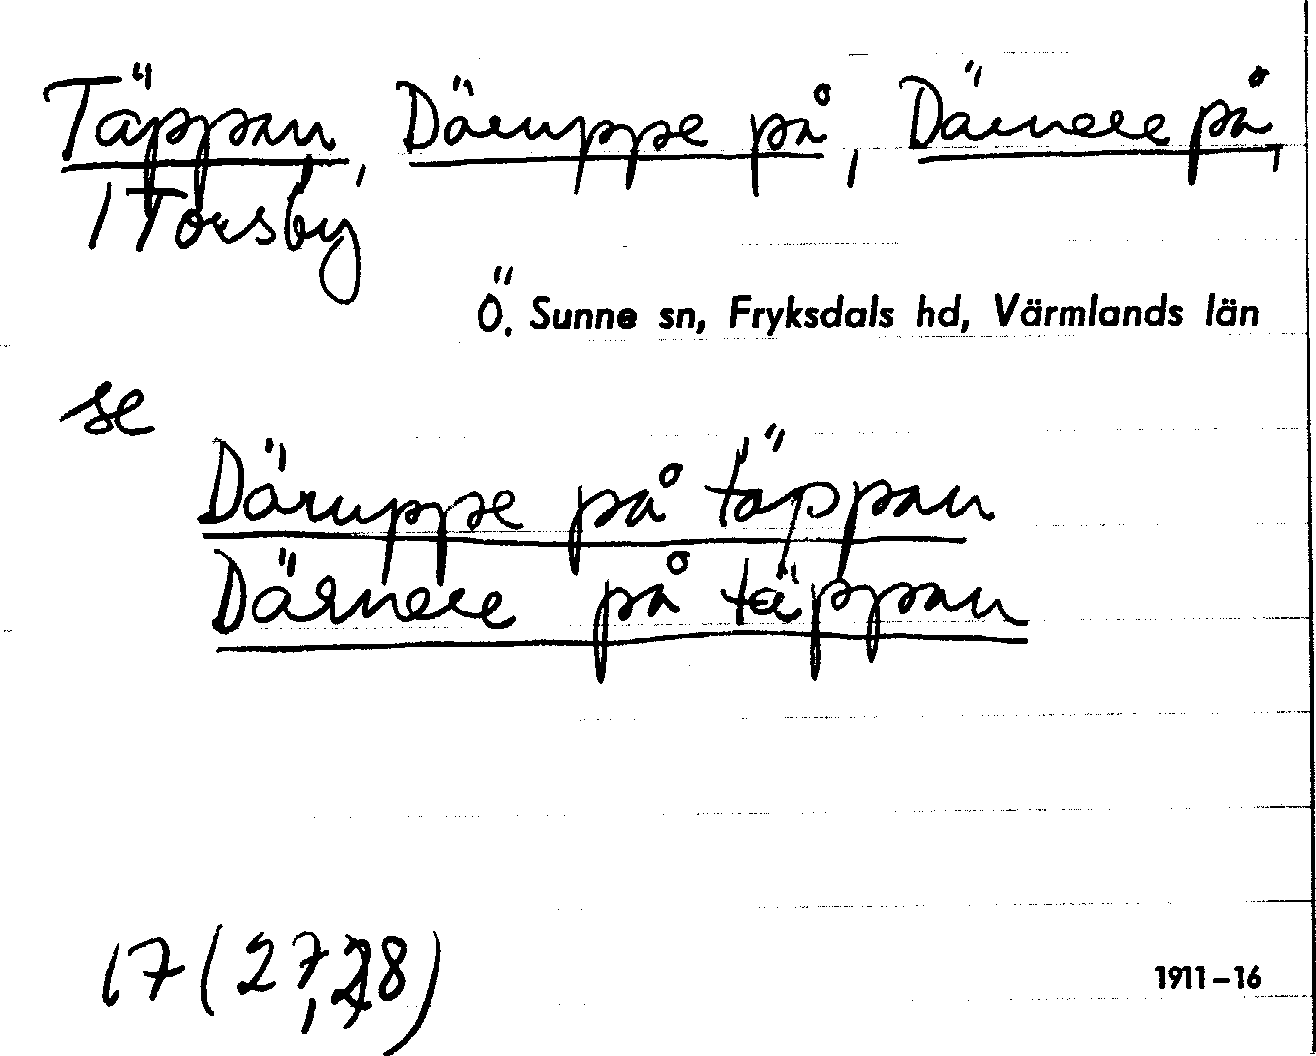 Täppan, Däruppe på, Därnere på,
i Torsby
Ö. Sunne sn, Fryksdals hd, Värmlands län
se
Däruppe på täppan
Därnere på täppan
17 (27, 28)
1911-16